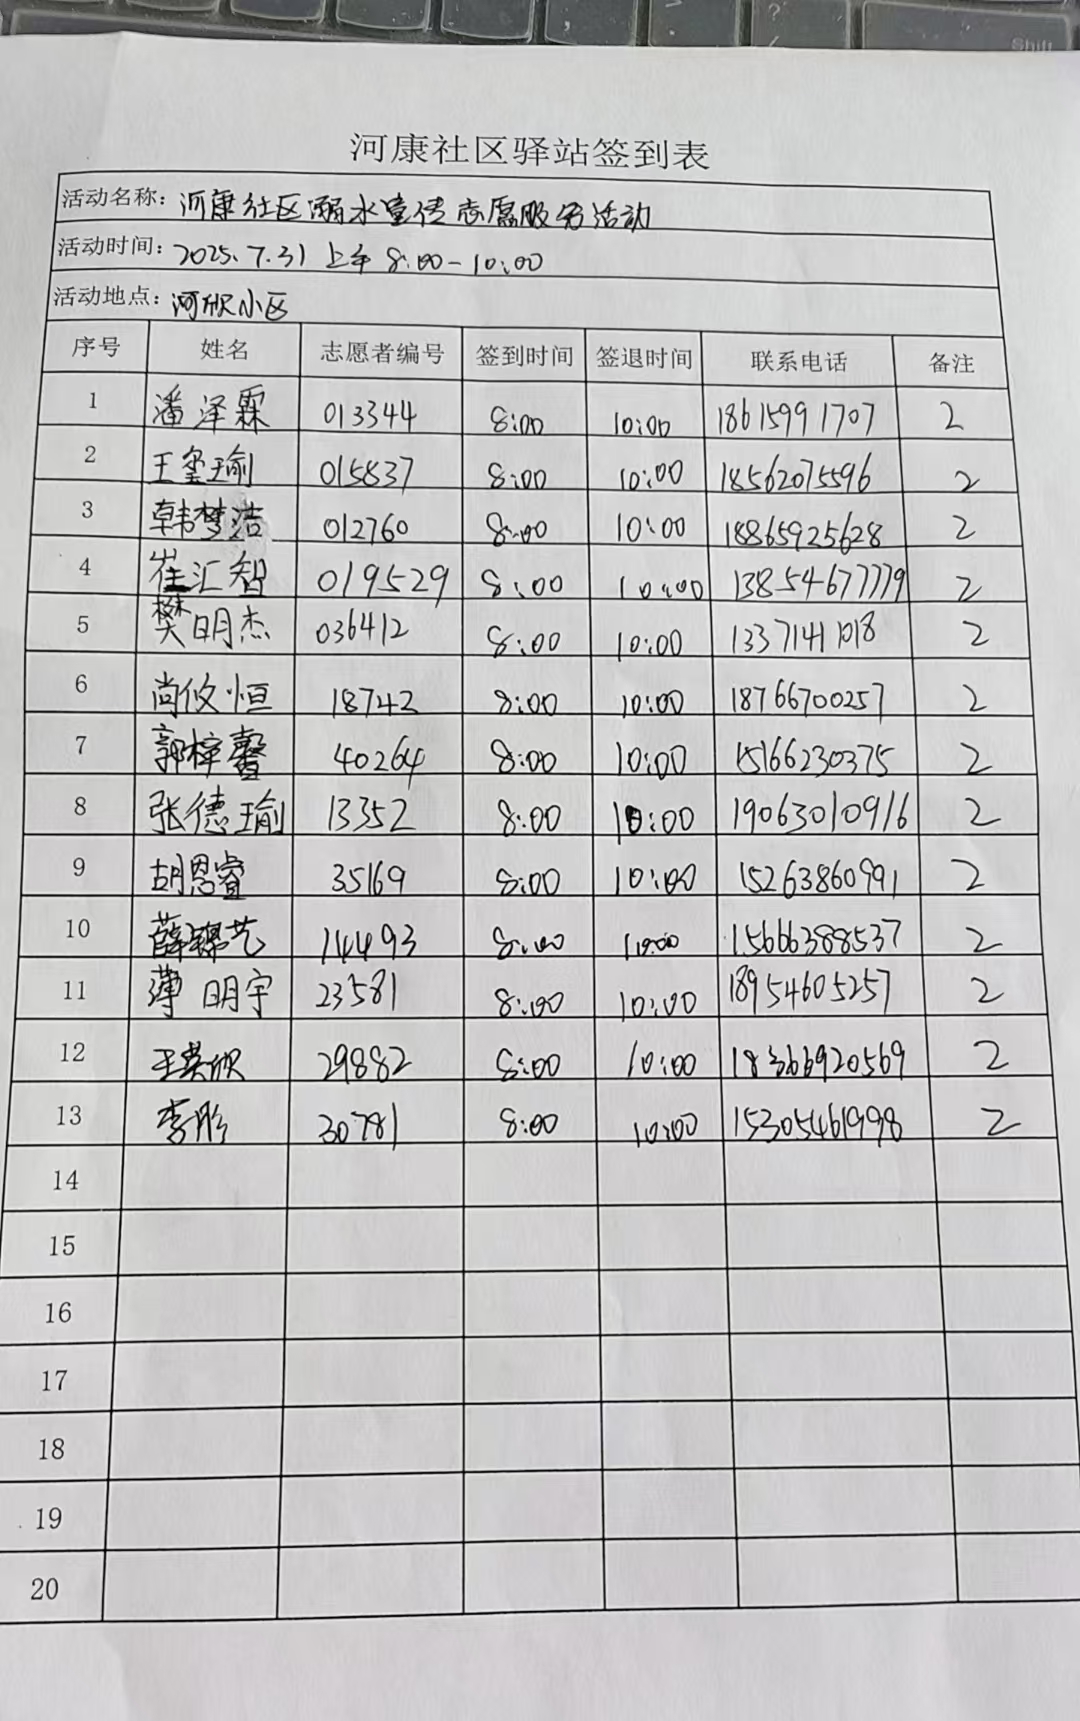 Shift
河康社区驿站签到表
活动名称：河康社区溺水宣传志愿服务活动
活动时间：2025.7.31 上午 8:00-10:00
活动地点：河欣小区
序号 姓名 志愿者编号 签到时间 签退时间 联系电话 备注
1 潘泽霖 013344 8:00 10:00 18615991707 2
2 王玺瑜 015837 8:00 10:00 18562075596 2
3 韩梦浩 012760 8:00 10:00 18865925628 2
4 崔汇智 019529 8:00 10:00 13854677779 2
5 樊明杰 036412 8:00 10:00 13371411018 2
6 尚攸恒 18742 8:00 10:00 18766700257 2
7 郭梓馨 40264 8:00 10:00 15166230375 2
8 张德瑜 13352 8:00 10:00 19063010916 2
9 胡恩睿 35169 8:00 10:00 15263860991 2
10 薛锦艺 14493 8:00 10:00 15666388537 2
11 薄明宇 23581 8:00 10:00 18954605257 2
12 王英欣 29882 8:00 10:00 18366920569 2
13 李彤 30781 8:00 10:00 15305461998 2
14
15
16
17
18
19
20